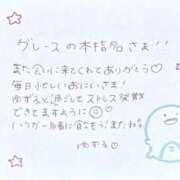 グレースの本指名さま!!
また会いに来てくれてありがとう♡
毎日忙しいおにいさま!
ゆずると過ごしてストレス発散
できてますように☺
いつか一緒に飲もうね またね
ゆずる♡